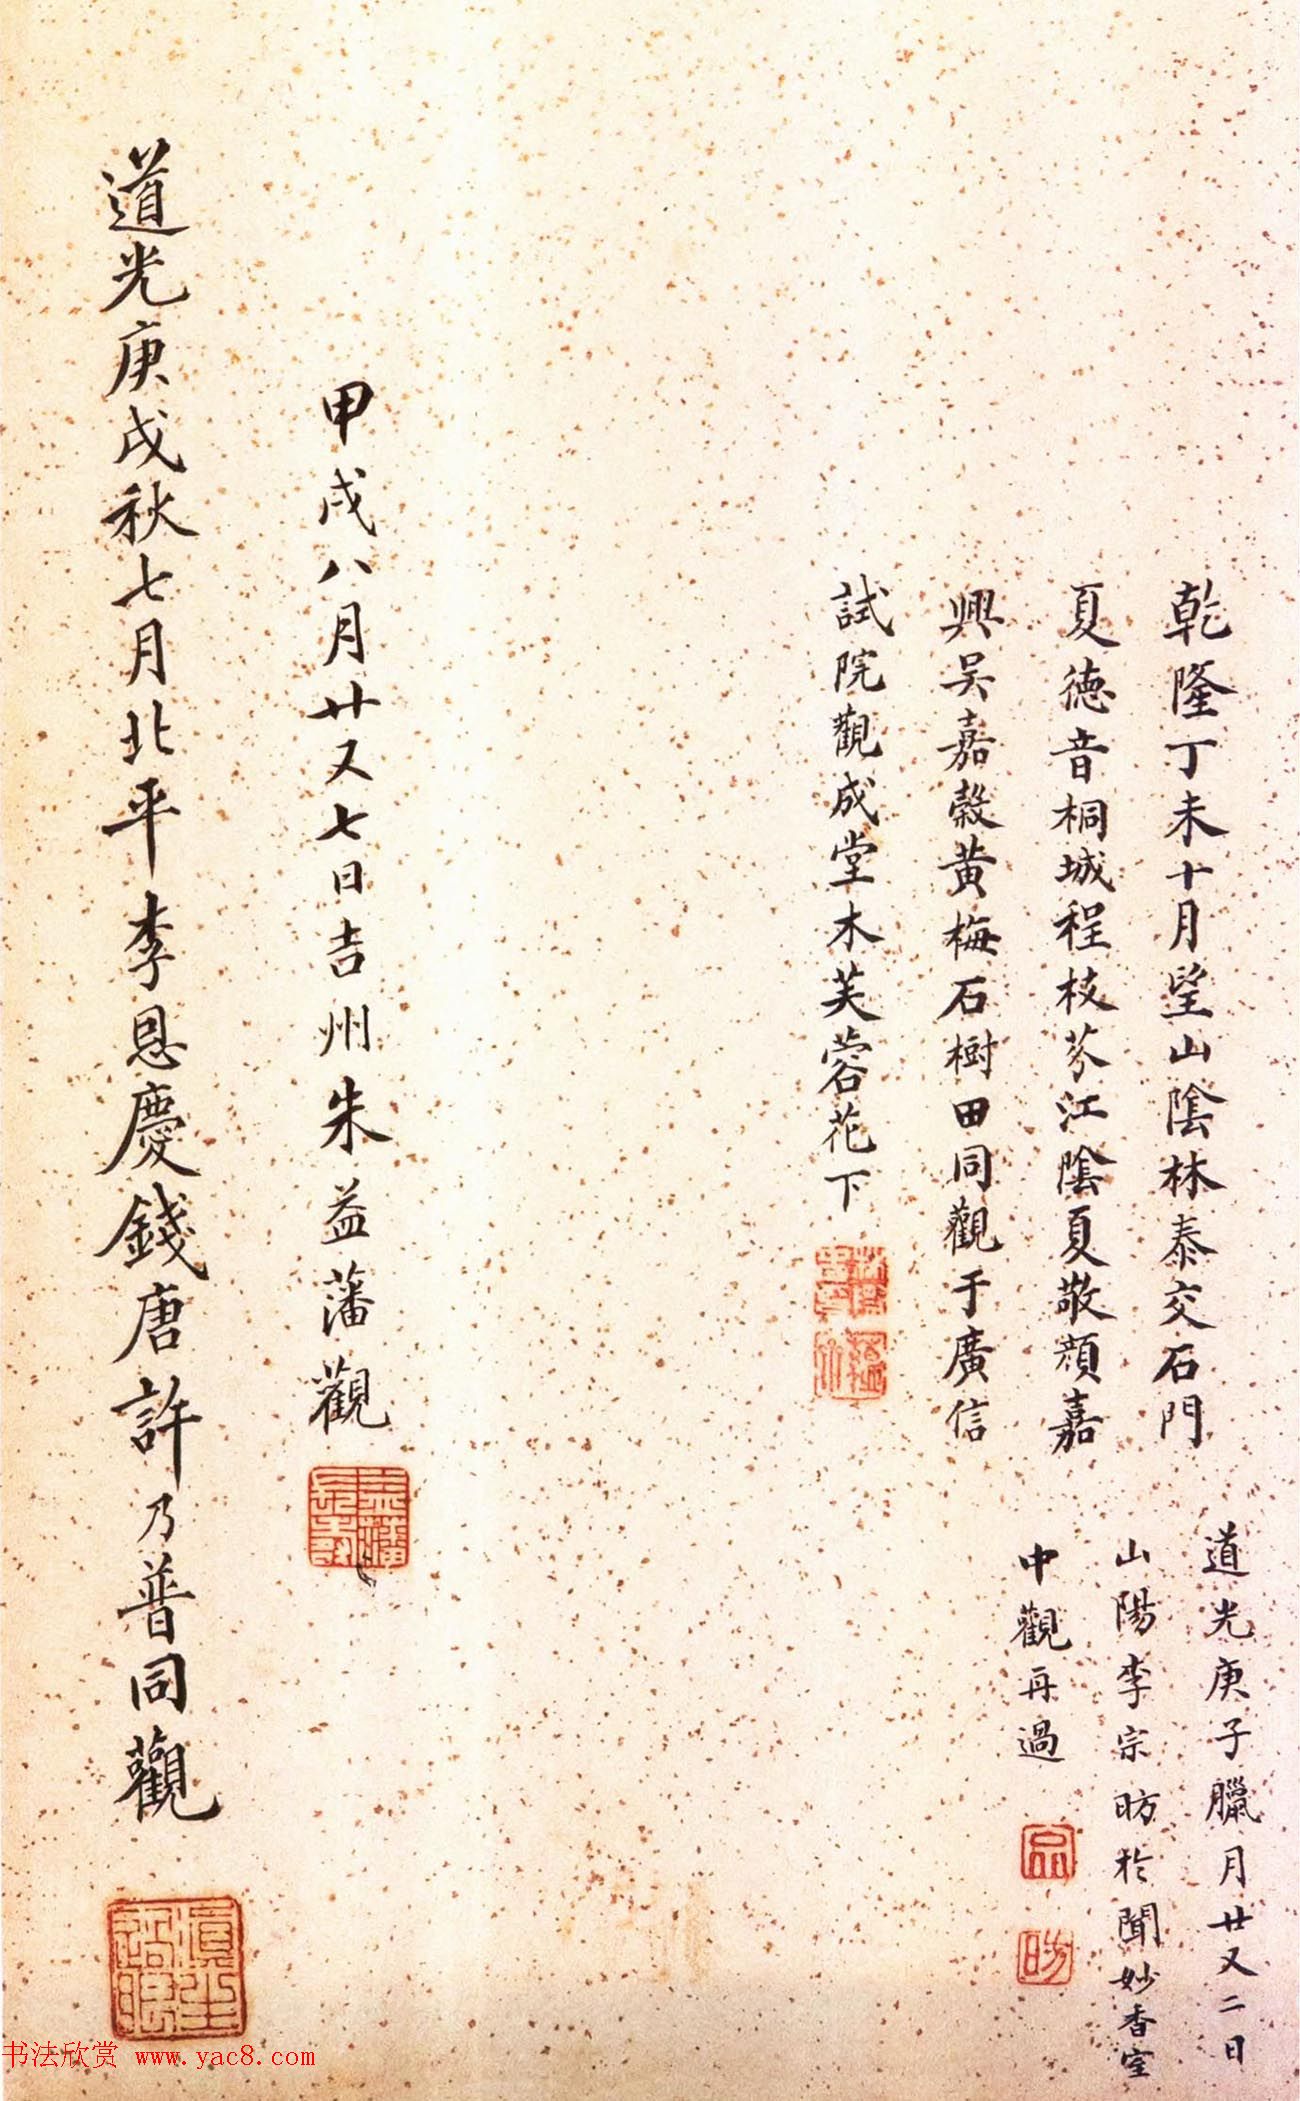 乾隆丁未十月望山陰林泰交石門
夏德音桐城程枝芬江陰夏敬顏嘉
興吴嘉穀黄梅石樹田同觀于廣信
試院觀成堂木芙蓉花下
道光庚子臘月廿又二日
山陽李宗昉於聞妙香室
中觀再過
甲戌八月廿又七日吉州朱益藩觀
道光庚戌秋七月北平李恩慶錢唐許乃普同觀
书法欣赏 www.yac8.com